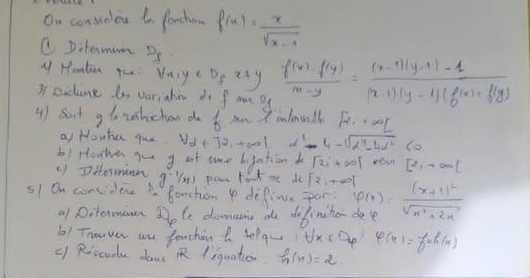 On considère la fonction f(x) = x / √(x-1)
① Déterminer Df.
2) Montrer que : ∀x,y ∈ Df x≠y (f(x)-f(y)) / (x-y) = ((x-1)(y-1) - 1) / ((x-1)(y-1)(f(x)+f(y)))
3) Déduire les variation de f sur Df
4) Soit g la restriction de f sur l'intervalle [2,+∞[
a) Montrer que : ∀α ∈ ]2,+∞[ α² - 4 - √(α⁴-4α²) < 0
b) Montrer que g est une bijection de [2,+∞[ vers [2,+∞[
c) Déterminer g⁻¹(x) pour tout x de [2,+∞[
5) On considère la fonction φ définie par : φ(x) = (x+1)² / √(x²+2x)
a) Déterminer Dφ le domaine de définition de φ
b) Trouver une fonction h telque : ∀x ∈ Dφ) φ(x) = foh(x)
c) Résoudre dans ℝ l'équation : h(x) = 2.